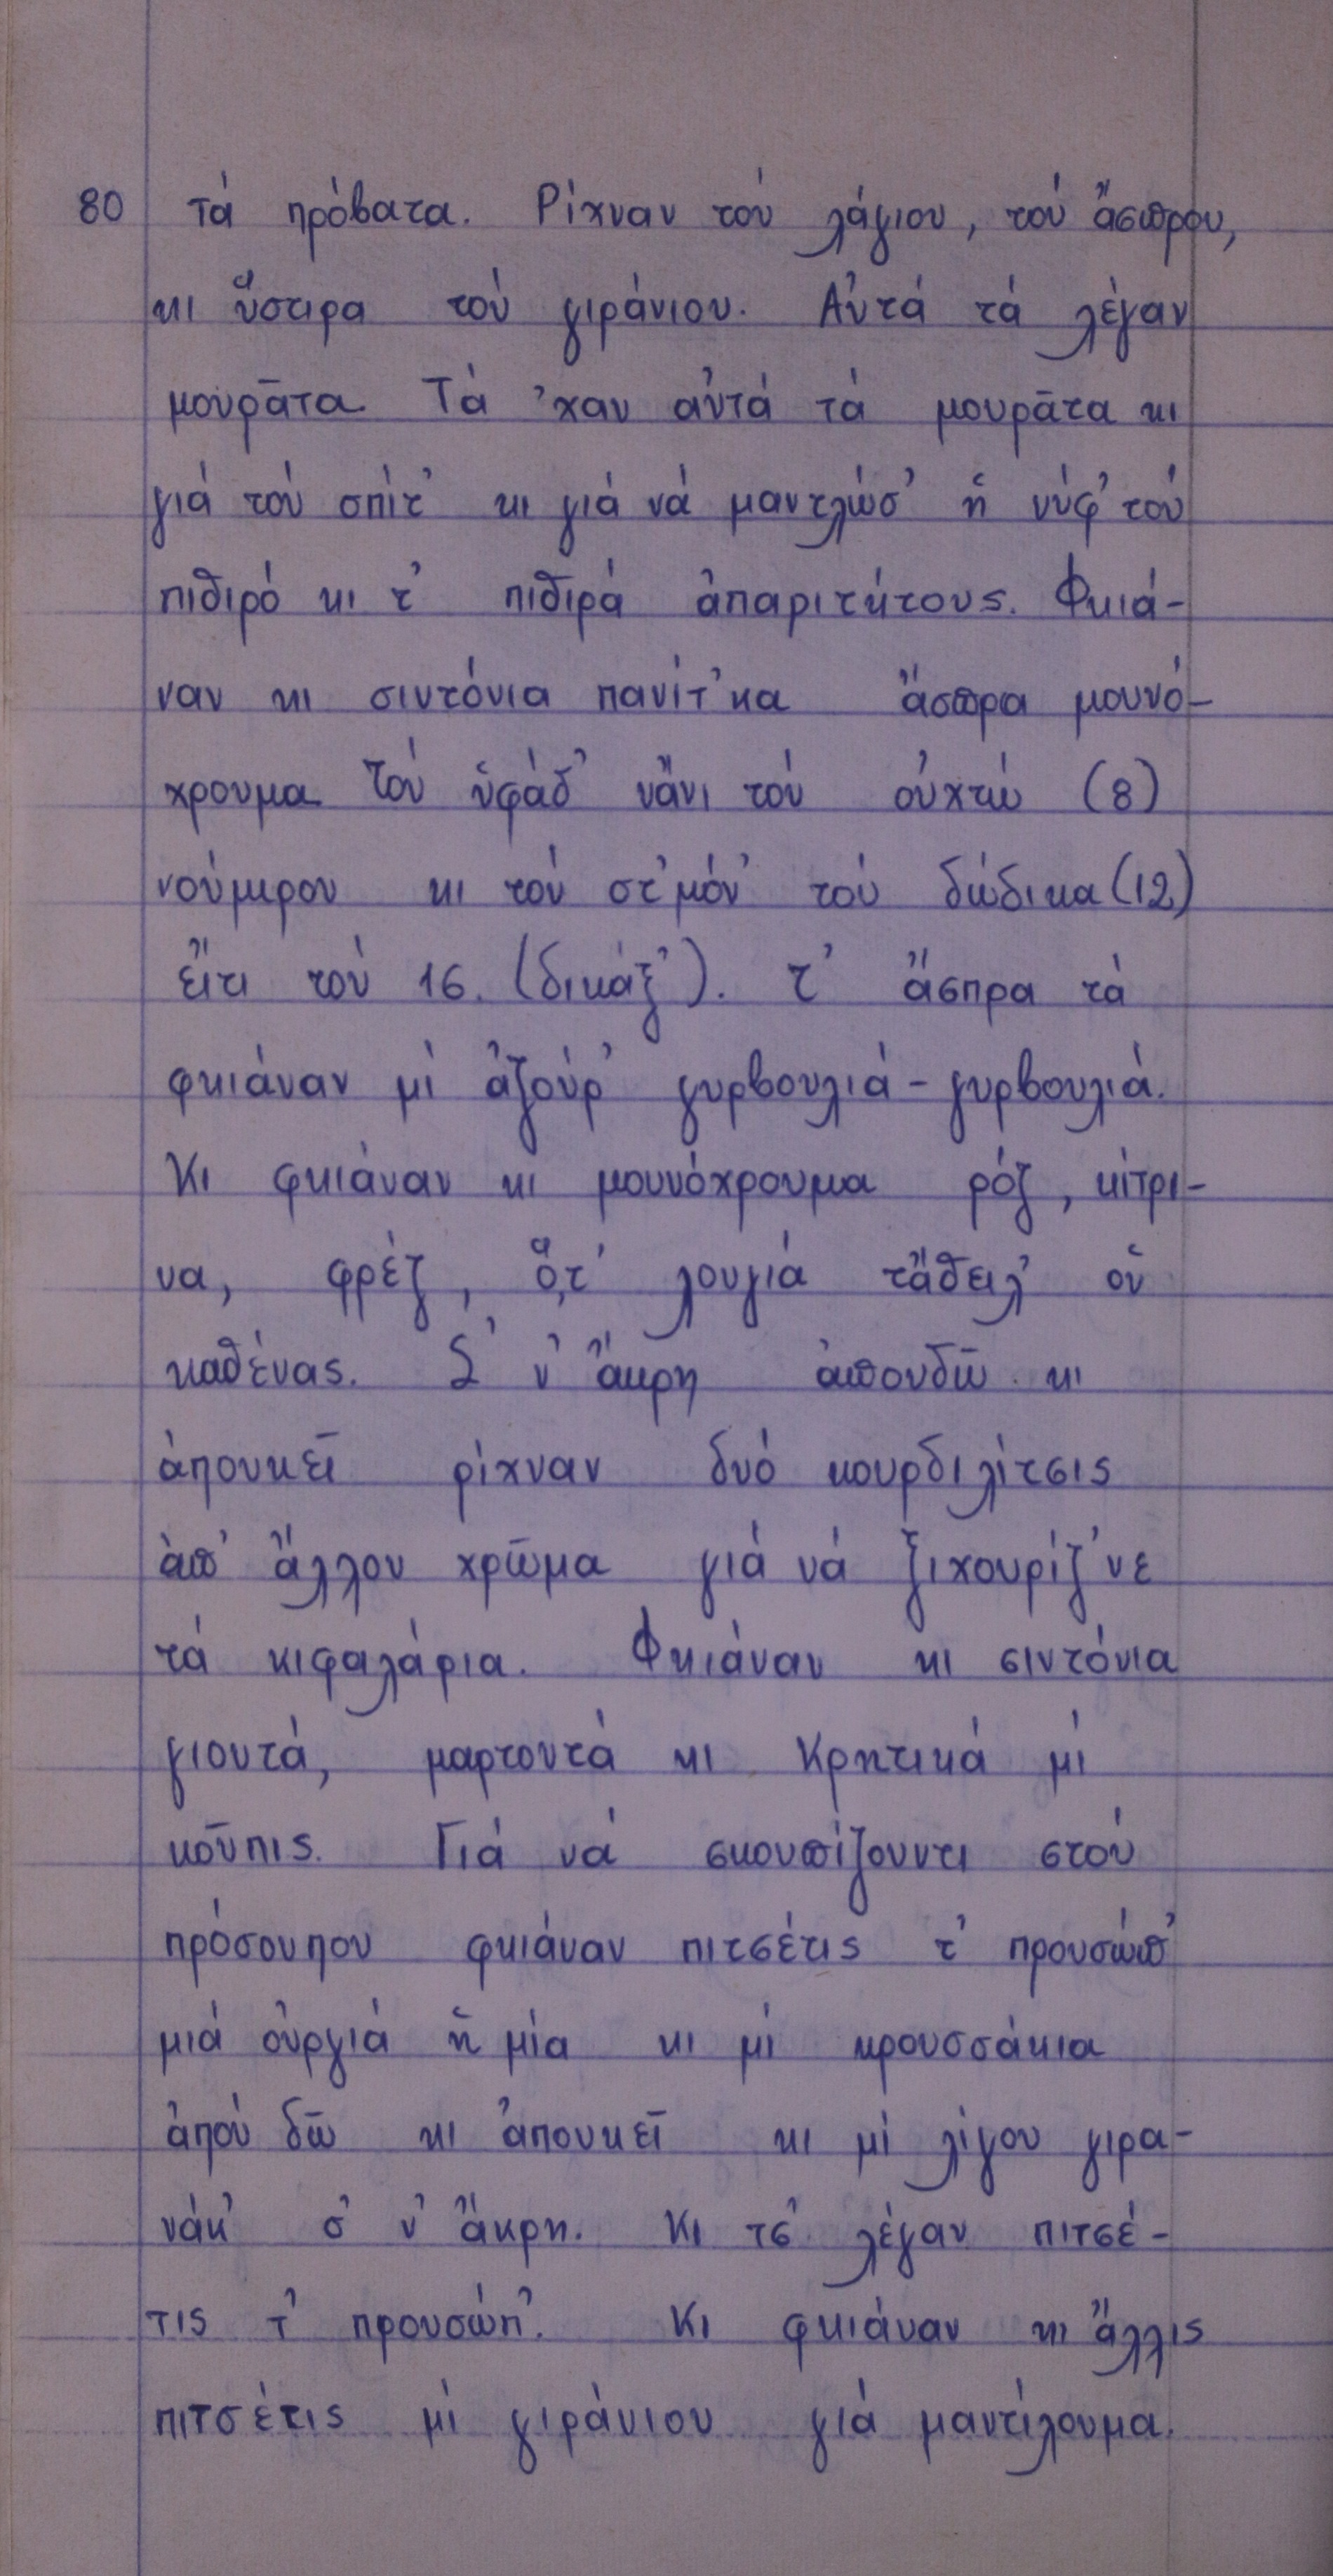 80 τά πρόβατα. Ρίχναν τού λάγιου, τού ἄσπρου,
κι ὕστιρα τού γιράνιου. Αὐτά τά λέγαν
μουρᾶτα. Τά ’χαν αὐτά τά μουρᾶτα κι
γιά τού σπίτ’ κι γιά νά μαντλώσ’ ἡ νύφ’ τού
πιθιρό κι τ’ πιθιρά ἀπαριτήτους. Φκιά-
ναν κι σιντόνια πανίτ’κα ἄσπρα μουνό-
χρουμα. Τού ὑφάδ’ νἄνι τού οὐχτώ (8)
νούμιρου κι τού στ’μόν’ τού δώδικα (12)
εἴτι τού 16. (δικάξ’). Τ’ ἄσπρα τά
φκιάναν μί ἀζούρ’ γυρβουλιά - γυρβουλιά.
Κι φκιάναν κι μουνόχρουμα ρόζ, κίτρι-
να, φρέζ, ὅ,τ’ λουγιά τἄθειλ’ οὑ
καθένας. Σ’ ν’ ἄκρη ἀπουδῶ κι
ἀπουκεῖ ρίχναν δυό κουρδιλίτσις
ἀπ’ ἄλλου χρῶμα γιά νά ξιχουρίζ’νε
τά κιφαλάρια. Φκιάναν κι σιντόνια
γιουτά, μαρτουτά κι Κρητικά μί
κοῦπις. Γιά νά σκουπίζουντι στού
πρόσουπου φκιάναν πιτσέτις τ’ προυσώπ’
μιά οὐργιά ἡ μία κι μί κρουσσάκια
ἀπού δῶ κι ἀπουκεῖ κι μί λίγου γιρα-
νάκ’ σ’ ν’ ἄκρη. Κι τσ’ λέγαν πιτσέ-
τις τ’ προυσώπ’. Κι φκιάναν κι ἄλλις
πιτσέτις μί γιράνιου γιά μαντίλουμα.